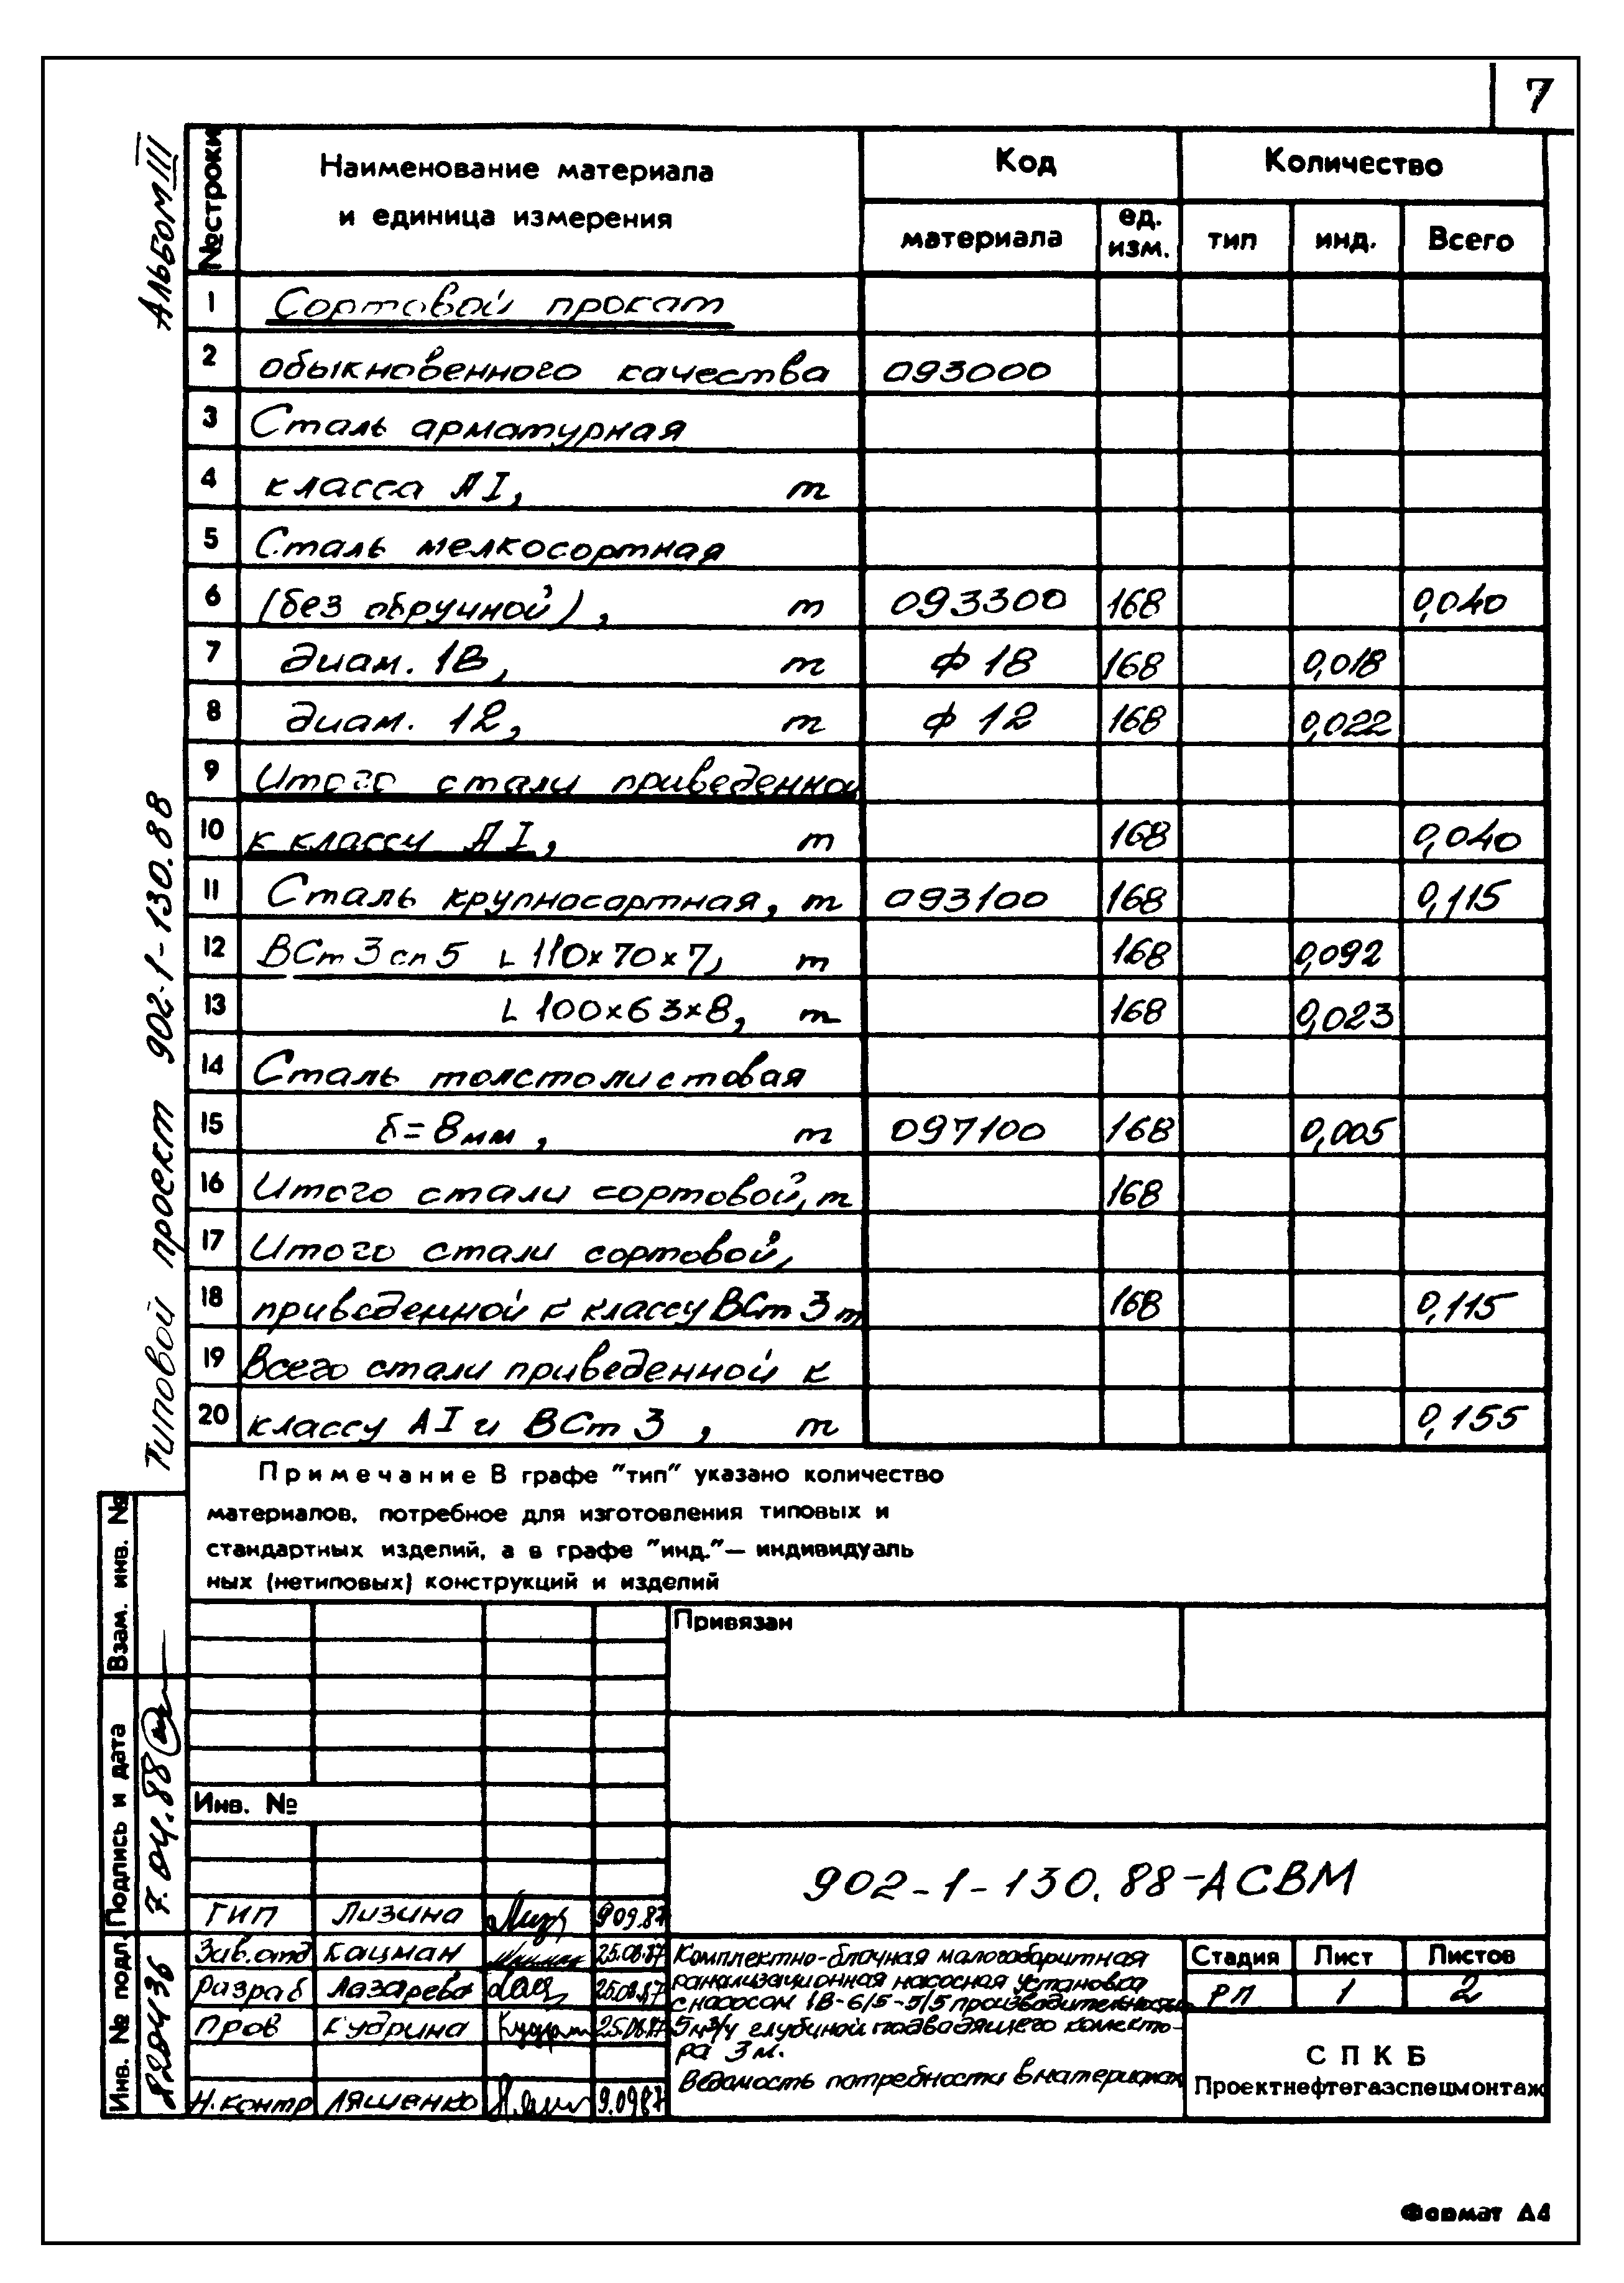 7
Альбом III
Типовой проект 902-1-130.88
№ строки
Наименование материала
и единица измерения
Код
Количество
материала
ед.
изм.
тип
инд.
Всего
1 Сортовой прокат
2 обыкновенного качества 093000
3 Сталь арматурная
4 класса АI, т
5 Сталь мелкосортная
6 (без обручной), т 093300 168 0,040
7 диам. 18, т ф 18 168 0,018
8 диам. 12, т ф 12 168 0,022
9 Итого стали приведенной
10 к классу АI, т 168 0,040
11 Сталь крупносортная, т 093100 168 0,115
12 ВСт 3 сп 5 L 110х70х7, т 168 0,092
13 L 100х63х8, т 168 0,023
14 Сталь толстолистовая
15 δ=8мм, т 097100 168 0,005
16 Итого стали сортовой, т 168
17 Итого стали сортовой,
18 приведенной к классу ВСт 3 т 168 0,115
19 Всего стали приведенной к
20 классу АI и ВСт 3, т 0,155
Примечание В графе "тип" указано количество
материалов, потребное для изготовления типовых и
стандартных изделий, а в графе "инд."— индивидуаль
ных (нетиповых) конструкций и изделий
Взам. инв. №
Подпись и дата
7.04.88
Инв. № подл.
Привязан
Инв. №
902-1-130.88-АСВМ
ГИП Лизина 9.09.87
Зав.отд Кацман 25.08.87
Разраб Лазарева 25.08.87
Пров Кудрина 25.08.87
Н.контр Ляшенко 9.09.87
Комплектно-блочная малогабаритная
канализационная насосная установка
с насосом 1В-6/5-5/5 производительностью
5 м³/ч глубиной подводящего коллекто-
ра 3м.
Ведомость потребности в материалах
Стадия Лист Листов
РП 1 2
СПКБ
Проектнефтегазспецмонтаж
Формат А4